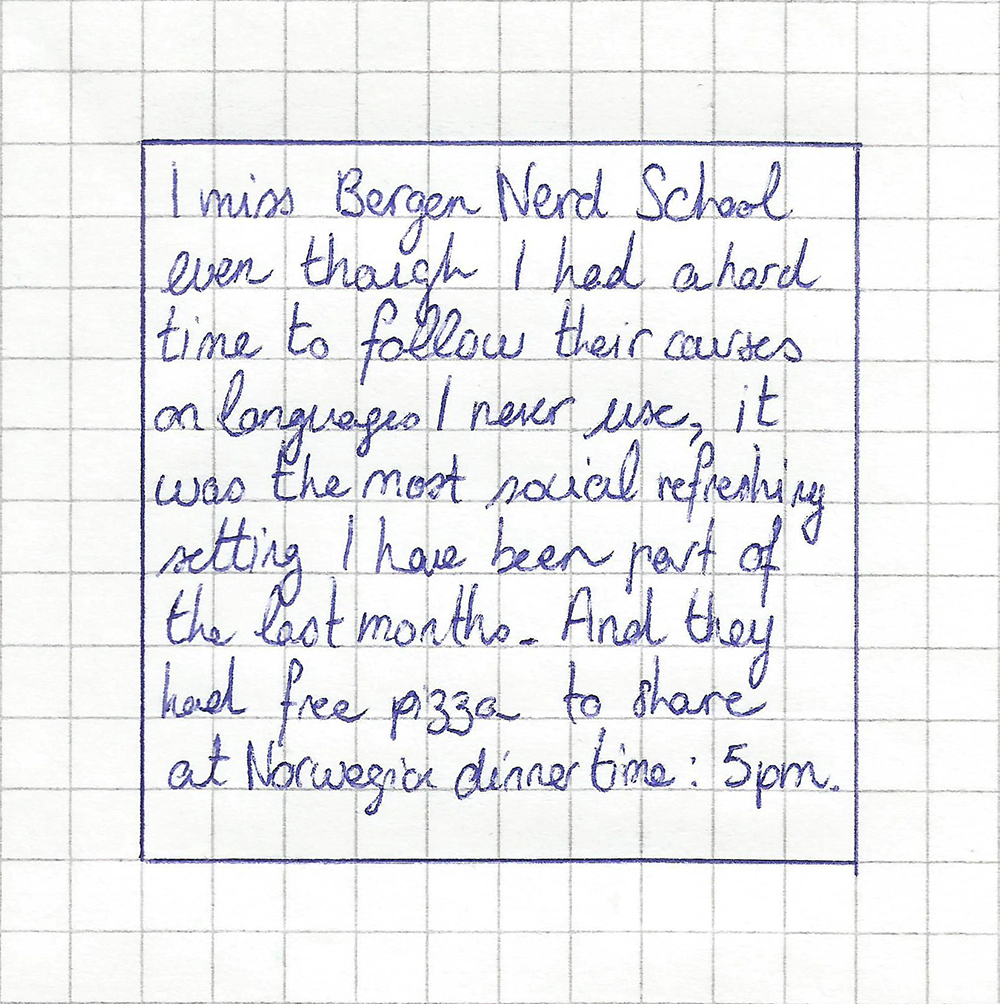 I miss Bergen Nerd School
even though I had a hard
time to follow their courses
on languages I never use, it
was the most social refreshing
setting I have been part of
the last months. And they
had free pizza to share
at Norwegian dinner time: 5pm.